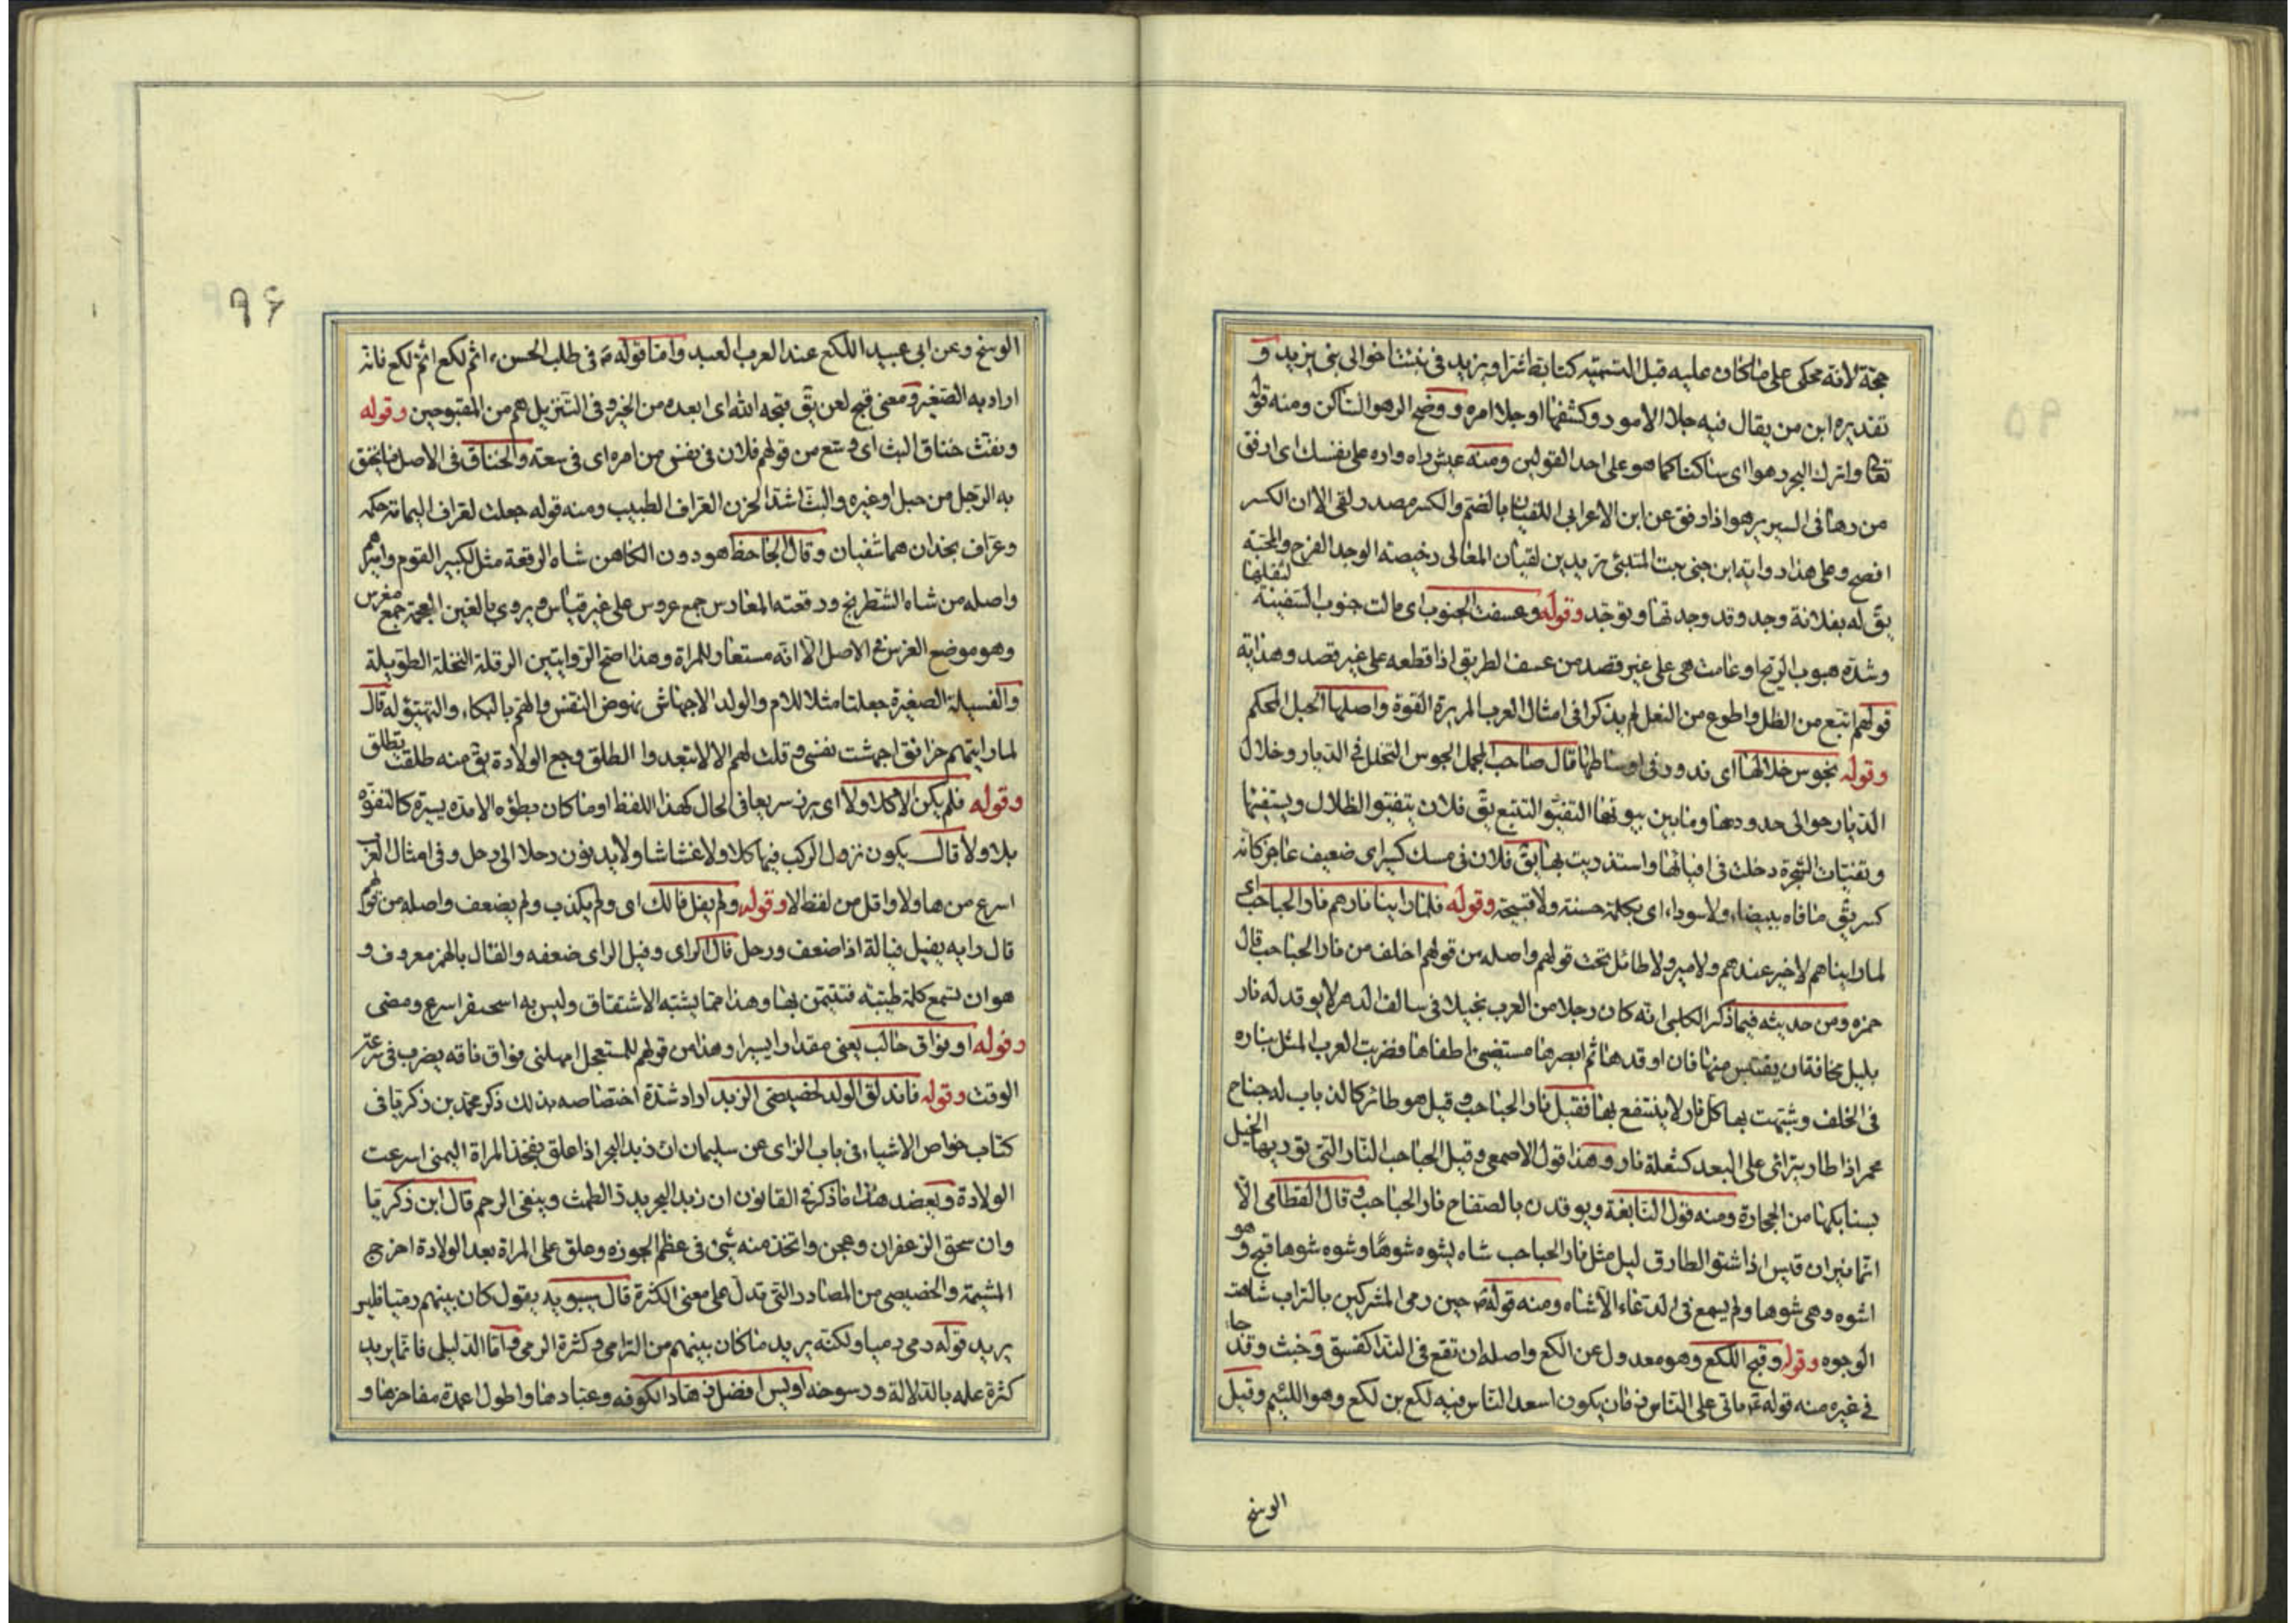 حجة لانه محكى على ما كان عليه قبل التسمية كتابط شرا ويزيد فى نبئت اخوالى بنى يزيد و
تقديره ابن من يقال فيه جلا الامور وكشفها او جلا امره ووضح الرهو الساكن ومنه قوله
تعالى واترك البحر رهوا اى ساكنا كما هو على احد القولين ومنه عيش راه واره على نفسك اى ارفق
من رها فى السير يرهو اذا رفق عن ابن الاعرابى اللقيان بالضم والكسر مصدر لقى الا ان الكسر
افصح وعلى هذا رواية ابن جنى بيت المتنبئ يزيد بن لقيان المعالى رخيصة الوجد الفرح والمحبة
يق له بفلانة وجد وقد وجد بها وتوجد وقوله وعسفت الجنوب اى مالت جنوب السفينة لثقلها
وشدة هبوب الريح او عامت هى على غير قصد من عسف الطريق اذا قطعه على غير قصد وهداية
قولهم اتبع من الظل واطوع من النعل لم يذكرا فى امثال العرب المريرة القوة واصلها الحبل المحكم
وقوله نجوس خلالها اى ندور فى اوساطها قال صاحب المجمل الجوس التخلل فى الديار وخلال
الديار حوالى حدودها وما بين بيوتها التفيؤ التتبع يق فلان يتفيؤ الظلال ويستفيئها
وتفيات الشجرة دخلت فى افيائها واستذريت بها يق فلان فى مسك كسير اى ضعيف عاجز كانه
كسر يق ما فاه ببيضاء ولا سوداء اى بكلمة حسنة ولا قبيحة وقوله فلما راينا نارهم نار الحباحب اى
لما راينا هم لا خير عندهم ولا مير ولا طائل تحت قولهم واصله من قولهم اخلف من نار الحباحب قال
حمزه ومن حديثه فيما ذكر الكلبى انه كان رجلا من العرب بخيلا فى سالف الدهر لا يوقد له نار
بليل مخافة ان يقتبس منها فان اوقدها ثم ابصرها مستضئ اطفاها فضربت العرب المثل بناره
فى الخلف وشبهت بها كل نار لا ينتفع بها فقيل نار الحباحب وقيل هو طائر كالذباب له جناح
محمر اذا طار يترائى على البعد كشعلة نار وهذا قول الاصمعى وقيل الحباحب النار التى توريها الخيل
بسنابكها من الحجارة ومنه قول النابغة ويوقدن بالصفاح نار الحباحب وقال القطامى الا
انما نيران قيس اذا شتو الطارق ليل مثل نار الحباحب شاه يشوه شوها وشوه شوها قبح وهو
اشوه وهى شوها ولم يسمع فى الدعاء الاشاه ومنه قوله حين رمى المشركين بالتراب شاهت
الوجوه وقوله وقبح اللكع وهو معدول عن الكع واصله ان تقع فى الندا كفسق وخبث وقد جاء
فى غيره منه قوله ياتى على الناس زمان يكون اسعد الناس فيه لكع بن لكع وهو اللئيم وقيل
الوسخ
۹۶
الوسخ وعن ابى عبيد اللكع عند العرب العبد واما قوله فى طلب الحسن اثم لكع اثم لكع فانه
اراد به الصغير ومعنى قبح لعن يق قبحه الله اى ابعده من الخير وفى التنزيل هم من المقبوحين وقوله
ونفث خناق البث اى وسع من قولهم فلان فى نفس من امره اى فى سعته والخناق فى الاصل ما يخنق
به الرجل من حبل او غيره والبث اشد الحزن العراف الطبيب ومنه قوله جعلت لعراف اليمامة حكمه
وعراف نجد ان هما شفيان وقال الجاحظ هو دون الكاهن شاه الرقعة مثل لكبير القوم واميرهم
واصله من شاه الشطرنج ورقعته المعارس جمع عروس على غير قياس ويروى بالغين المعجمة جمع مغرس
وهو موضع الغرس فى الاصل الا انه مستعار للمراة وهذا اصح الروايتين الرقلة النخلة الطويلة
والفسيلة الصغيرة جعلتا مثلا للام والولد الاجهاش نهوض النفس والهم بالبكاء والتهيؤ له قال
لما رايتهم حزانق اجهشت نفسى وقلت لهم الا لا تبعدوا الطلق وجع الولادة يق منه طلقت تطلق
وقوله فلم يكن الا كلا ولا اى برز سريعا فى الحال كهذا اللفظ او ما كان بطؤه الا مدة يسيرة كالتفوه
بلا ولا قال يكون نزول الركب فيها كلا ولا غشاشا ولا يدنون رحلا الى رحل وفى امثال العرب
اسرع من ها ولا واقل من لفظ لا وقوله ولم يفل فالك اى ولم يكذب ولم يضعف واصله من قولهم
قال رايه يفيل فيالة اذا ضعف ورجل فال الراى وفيل الراى ضعفه والفال بالهمز معروف و
هو ان تسمع كلمة طيبة فتتيمن بها وهذا مما يشبه الاشتقاق وليس به اسحنفر اسرع ومضى
وقوله او فواق حالب يعنى مقدارا يسيرا وهذا من قولهم للمستعجل امهلنى فواق ناقه يضرب فى سرعة
الوقت وقوله فاندلق الولد لخصيصى الزبد اراد شدة اختصاصه بذلك ذكر محمد بن زكريا فى
كتاب خواص الاشياء فى باب الزاى عن سليمان ان زبد البحر اذا علق بفخذ المراة اليمنى اسرعت
الولادة ويعضد هذا ما ذكر فى القانون ان زبد البحر يدر الطمث وينقى الرحم قال ابن زكريا
وان سحق الزعفران وعجن واتخذ منه شئ فى عظم الجوزه وعلق على المراة بعد الولادة اخرج
المشيمة والخصيصى من المصادر التى تدل على معنى الكثرة قال سيبويه يقول كان بينهم رميا فليس
يريد قوله رمى رميا ولكنه يريد ما كان بينهم من الترامى وكثرة الرمى واما الدليلى فانما يريد
كثرة علمه بالدلالة ورسوخه اويس افضل زهاد الكوفه وعبادها واطول اعمدة مفاخرها و